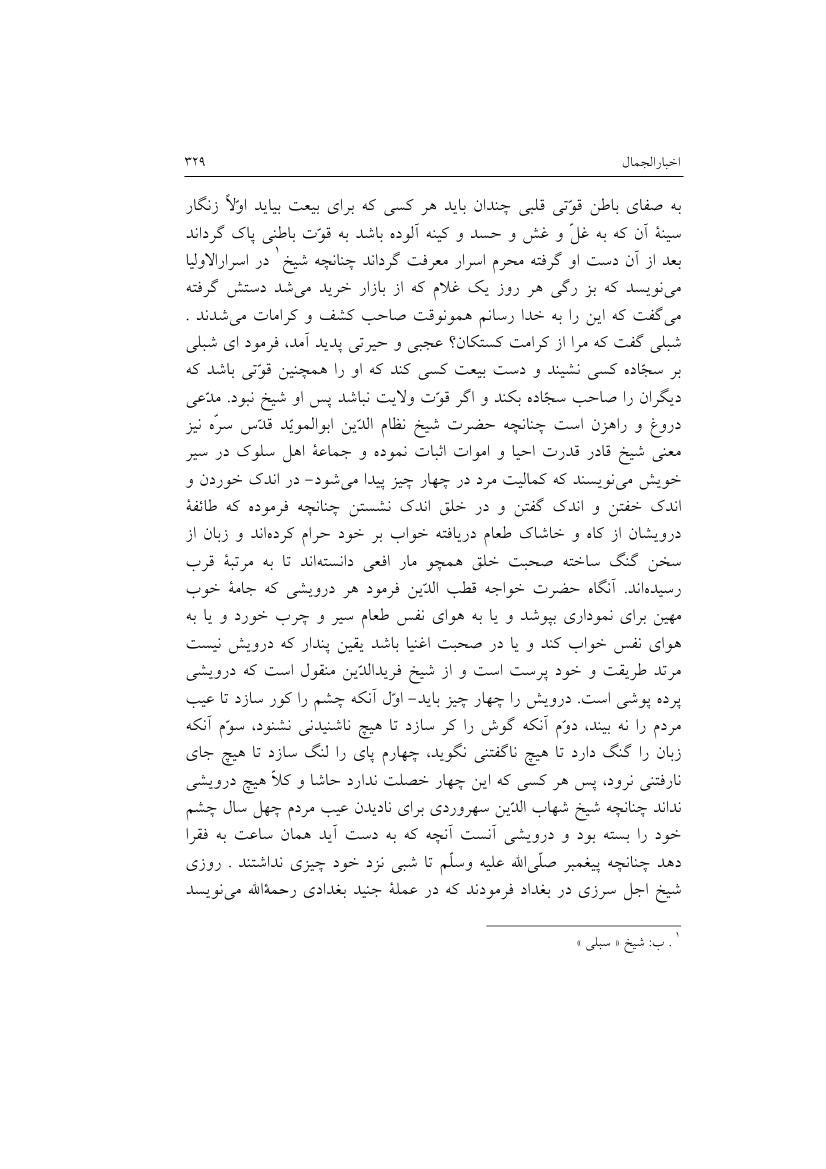 اخبارالجمال ۳۲۹
به صفای باطن قوّتی قلبی چندان باید هر کسی که برای بیعت بیاید اوّلاً زنگار
سینهٔ آن که به غلّ و غش و حسد و کینه آلوده باشد به قوّت باطنی پاک گرداند
بعد از آن دست او گرفته محرم اسرار معرفت گرداند چنانچه شیخ۱ در اسرارالاولیا
می‌نویسد که بز رگی هر روز یک غلام که از بازار خرید می‌شد دستش گرفته
می‌گفت که این را به خدا رسانم همونوقت صاحب کشف و کرامات می‌شدند .
شبلی گفت که مرا از کرامت کستکان؟ عجبی و حیرتی پدید آمد، فرمود ای شبلی
بر سجّاده کسی نشیند و دست بیعت کسی کند که او را همچنین قوّتی باشد که
دیگران را صاحب سجّاده بکند و اگر قوّت ولایت نباشد پس او شیخ نبود. مدّعی
دروغ و راهزن است چنانچه حضرت شیخ نظام الدّین ابوالمویّد قدّس سرّه نیز
معنی شیخ قادر قدرت احیا و اموات اثبات نموده و جماعهٔ اهل سلوک در سیر
خویش می‌نویسند که کمالیت مرد در چهار چیز پیدا می‌شود- در اندک خوردن و
اندک خفتن و اندک گفتن و در خلق اندک نشستن چنانچه فرموده که طائفهٔ
درویشان از کاه و خاشاک طعام دریافته خواب بر خود حرام کرده‌اند و زبان از
سخن گنگ ساخته صحبت خلق همچو مار افعی دانسته‌اند تا به مرتبهٔ قرب
رسیده‌اند. آنگاه حضرت خواجه قطب الدّین فرمود هر درویشی که جامهٔ خوب
مهین برای نموداری بپوشد و یا به هوای نفس طعام سیر و چرب خورد و یا به
هوای نفس خواب کند و یا در صحبت اغنیا باشد یقین پندار که درویش نیست
مرتد طریقت و خود پرست است و از شیخ فریدالدّین منقول است که درویشی
پرده پوشی است. درویش را چهار چیز باید- اوّل آنکه چشم را کور سازد تا عیب
مردم را نه بیند، دوّم آنکه گوش را کر سازد تا هیچ ناشنیدنی نشنود، سوّم آنکه
زبان را گنگ دارد تا هیچ ناگفتنی نگوید، چهارم پای را لنگ سازد تا هیچ جای
نارفتنی نرود، پس هر کسی که این چهار خصلت ندارد حاشا و کلاّ هیچ درویشی
نداند چنانچه شیخ شهاب الدّین سهروردی برای نادیدن عیب مردم چهل سال چشم
خود را بسته بود و درویشی آنست آنچه که به دست آید همان ساعت به فقرا
دهد چنانچه پیغمبر صلّی‌الله علیه وسلّم تا شبی نزد خود چیزی نداشتند . روزی
شیخ اجل سرزی در بغداد فرمودند که در عملهٔ جنید بغدادی رحمةالله می‌نویسد
۱ . ب: شیخ « سبلی »